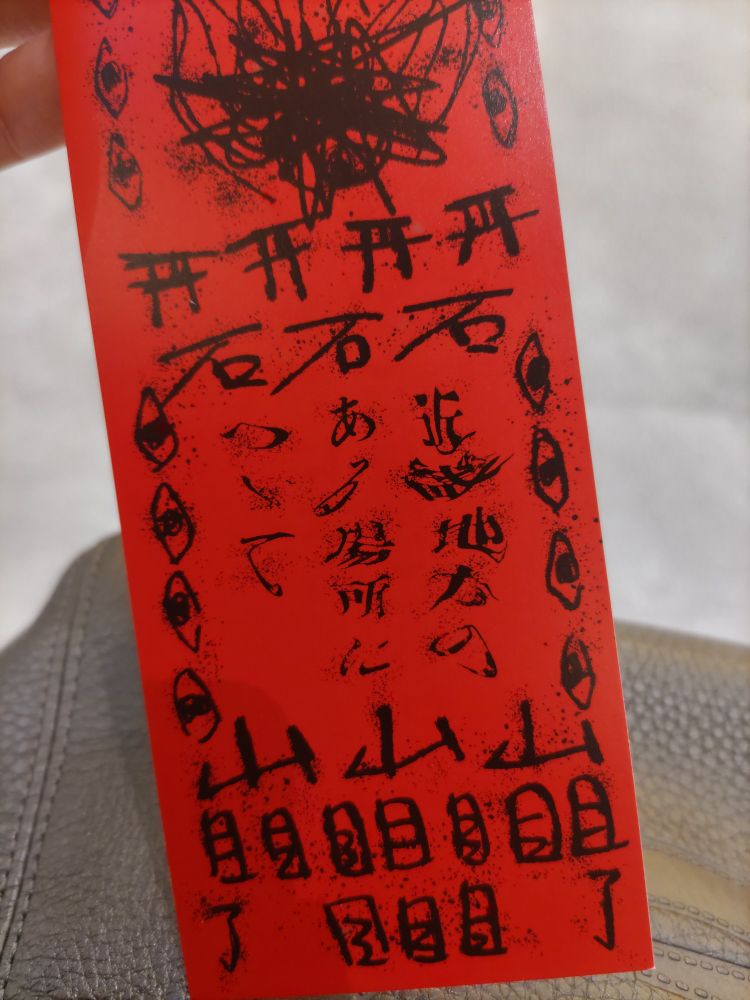 石石石
近畿地方の
ある場所に
ついて
山山山
目目目目目目目
了目目目了